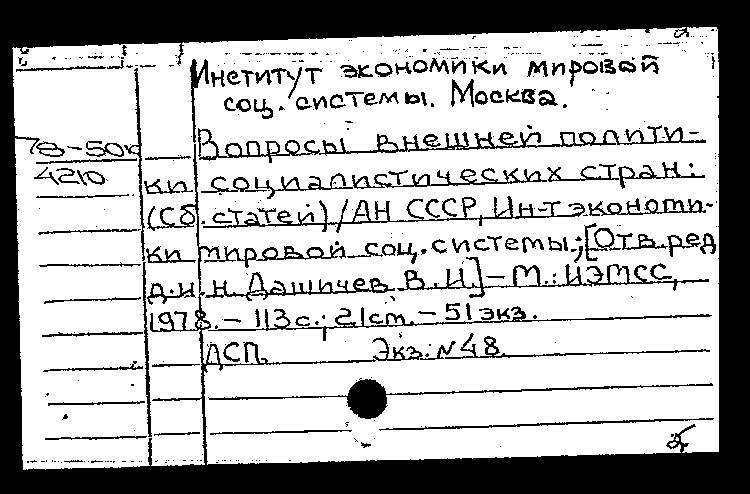 Институт экономики мировой
соц. системы. Москва.
78-50к
4210
Вопросы внешней полити-
ки социалистических стран:
(Сб. статей)/АН СССР, Ин-т экономи-
ки мировой соц. системы; [Отв. ред
д.и.н. Дашичев В.И.] – М.: ИЭМСС,
1978. – 113 с.; 21 см. – 51 экз.
ДСП. Экз: N 48